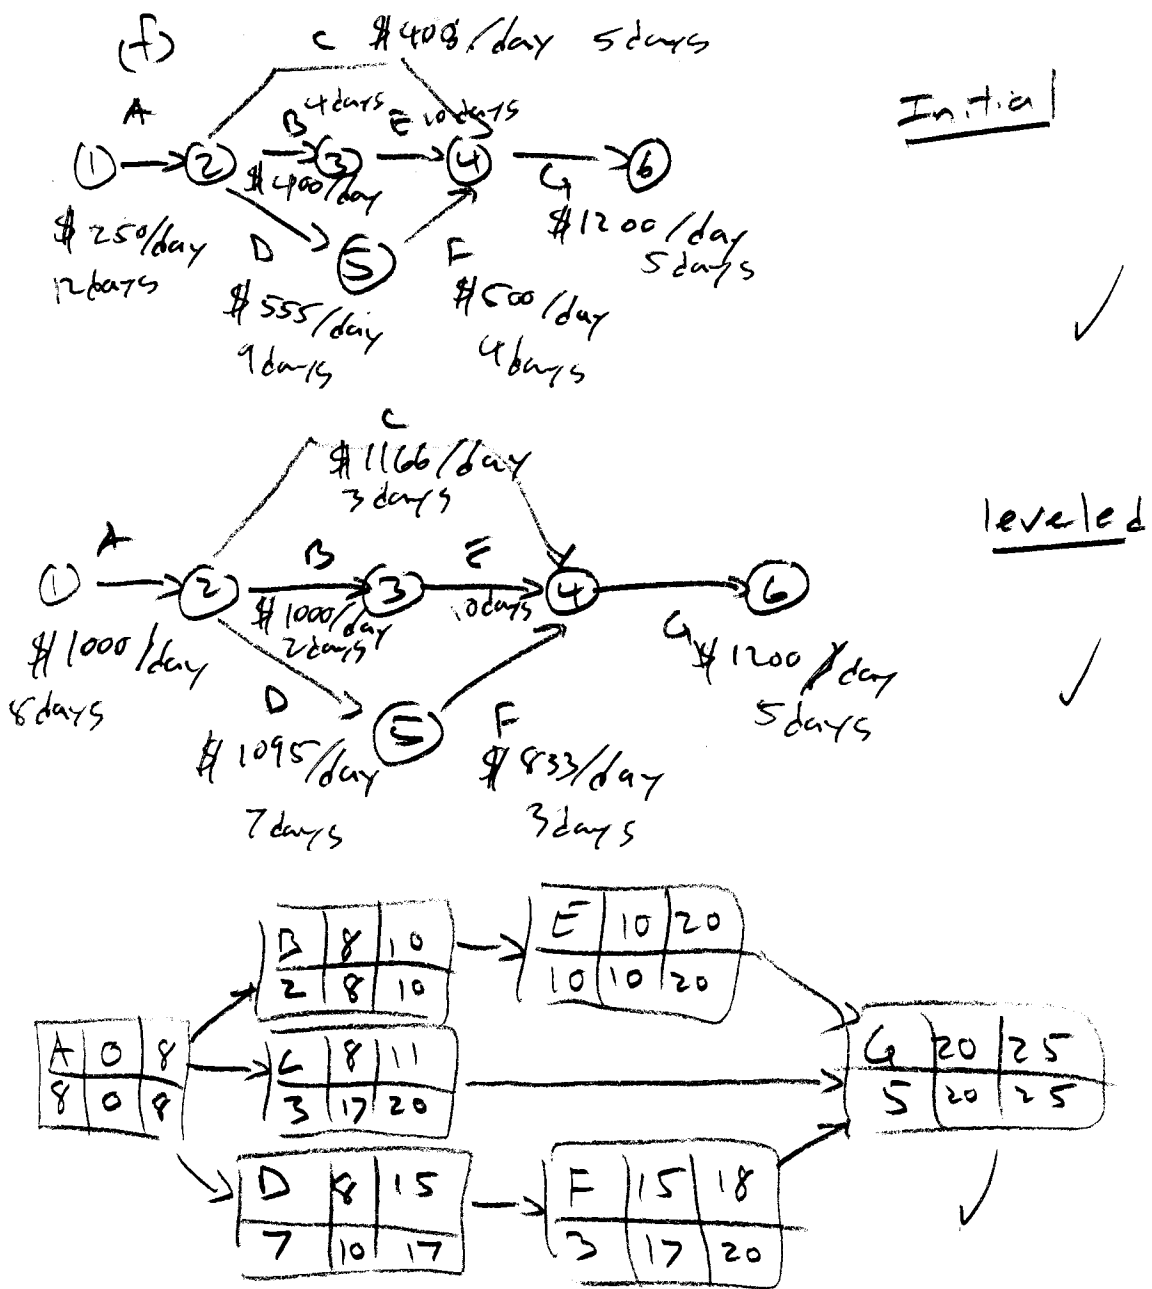 (f)
C $408/day 5days
Initial
A
B 4days
E 10days
1 2 3 4 6
$400/day
G
$250/day
12days
D
5
F
$1200/day
5days
$555/day
9days
$500/day
4days
C
$1166/day
3days
leveled
A
B
E
1 2 3 4 6
$1000/day
2days
10days
$1000/day
8days
G $1200/day
5days
D
5
F
$1095/day
7days
$833/day
3days
B 8 10
2 8 10
E 10 20
10 10 20
A 0 8
8 0 8
C 8 11
3 17 20
G 20 25
5 20 25
D 8 15
7 10 17
F 15 18
3 17 20